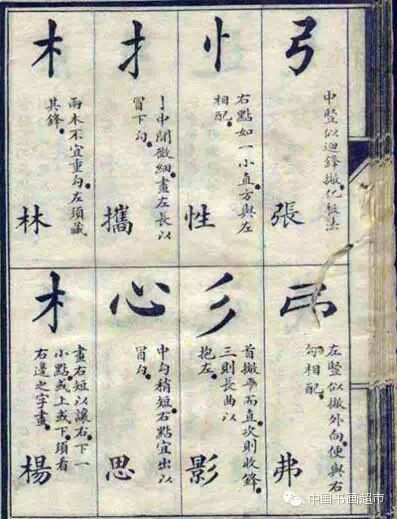 弓
中豎似迴鋒撇化法
張
忄
右點如一小直方與左
相配。
性
扌
亅中間微細畫左長以
冒下勾。
攜
木
兩木不宜重勾左須藏
其鋒。
林
左豎似撇外向使與右
勾相配。
弗
彡
首撇平而直次則收鋒。
三則長曲以
抱左。
影
心
中勾稍短右點宜出以
冒勾。
思
木
畫右短以讓右。下一
小點或上或下。須看
右邊之字畫。
楊
中国书画超市